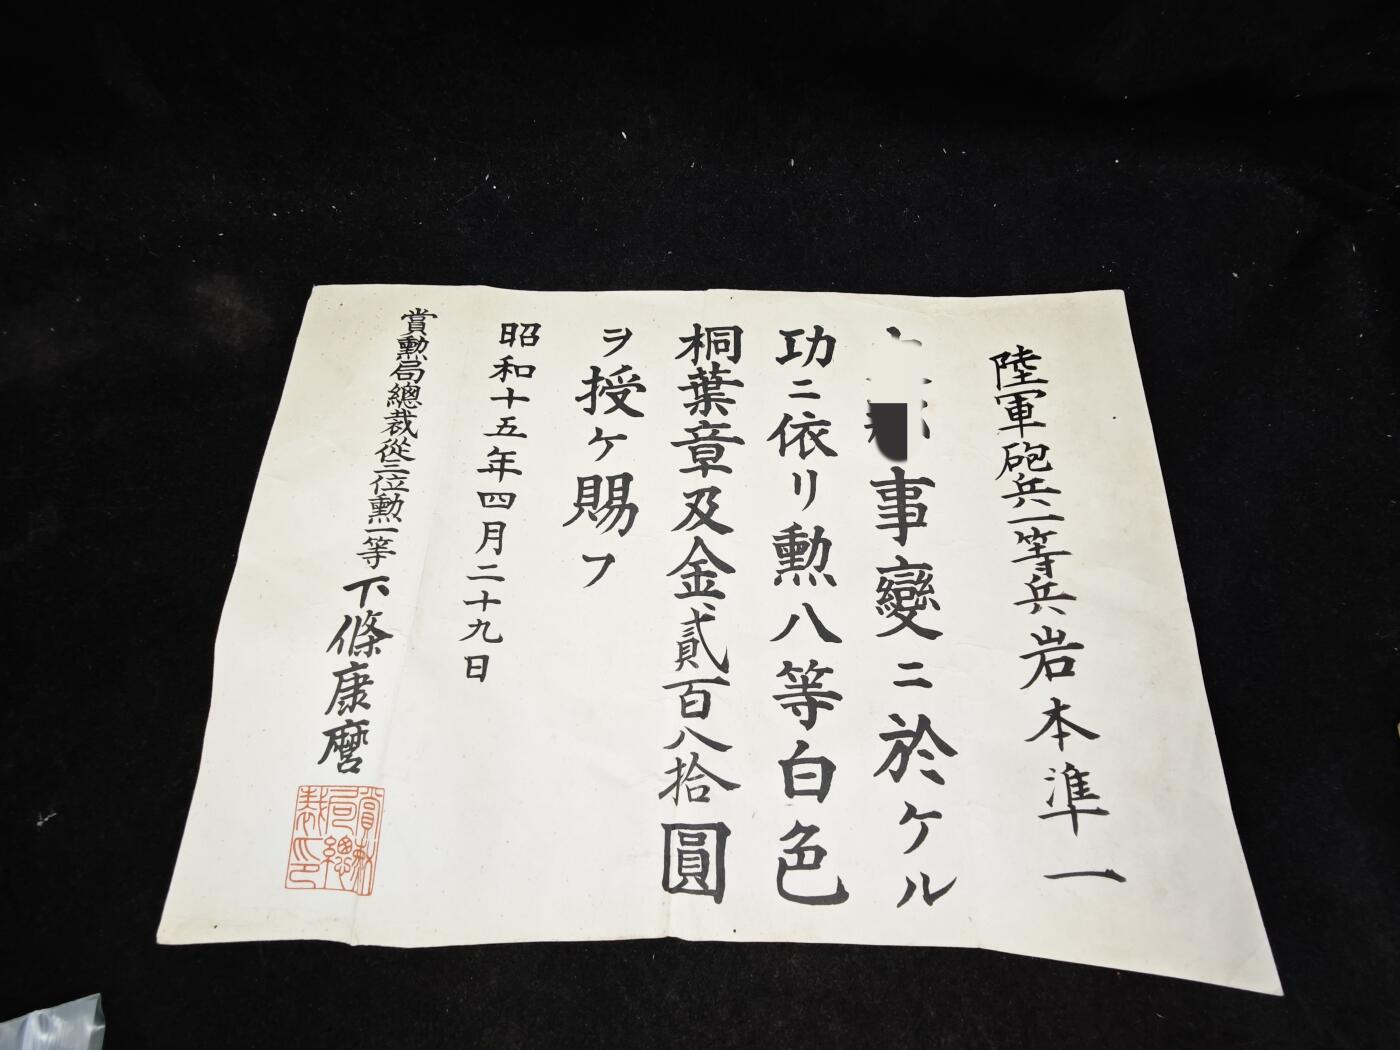 陸軍砲兵一等兵岩本準一
事變ニ於ケル
功ニ依リ勲八等白色
桐葉章及金貳百八拾圓
ヲ授ケ賜フ
昭和十五年四月二十九日
賞勲局總裁從三位勲一等下條康麿
賞勲局總裁印